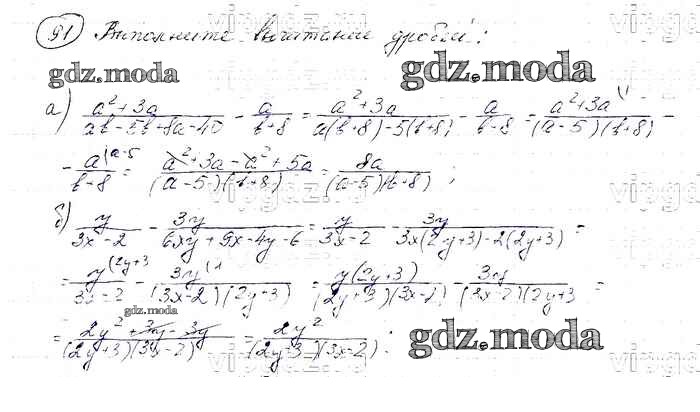 91 Выполните вычитание дробей:
gdz.moda gdz.moda
а) (a²+3a)/(ab-5b+8a-40) - a/(b+8) = (a²+3a)/(a(b+8)-5(b+8)) - a/(b-8) = (a²+3a (1)/((a-5)(b+8)) -
- (a (a-5)/(b+8) = (a²+3a-a²+5a)/((a-5)(b+8)) = 8a/((a-5)(b+8)) ;
б) y/(3x-2) - 3y/(6xy+9x-4y-6) = y/(3x-2) - 3y/(3x(2y+3)-2(2y+3)) =
= (y (2y+3)/(3x-2) - (3y (1)/((3x-2)(2y+3)) = (y(2y+3))/((2y+3)(3x-2)) - 3y/((3x-2)(2y+3) =
gdz.moda
= (2y²+3y-3y)/((2y+3)(3x-2)) = 2y²/((2y+3)(3x-2)) .
gdz.moda